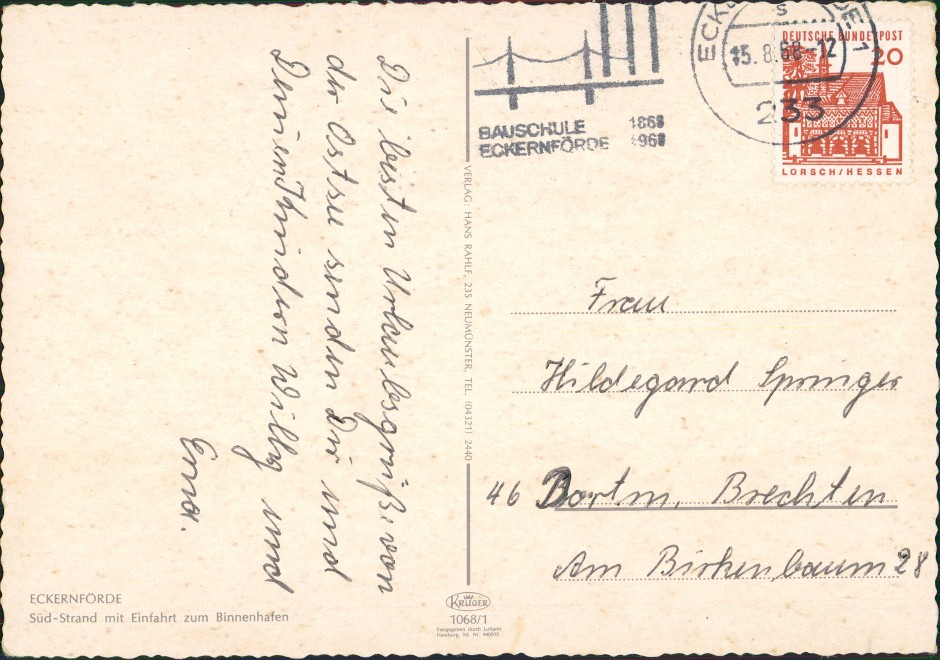 Die besten Urlaubsgrüße von
der Ostsee senden Dir und
Deinen Kindern Willy und
Erna.
ECKERNFÖRDE
Süd-Strand mit Einfahrt zum Binnenhafen
VERLAG: HANS RAHLF, 235 NEUMÜNSTER, TEL. (04321) 2440
KRÜGER
1068/1
Freigegeben durch Luftamt
Hamburg, lfd. Nr.
BAUSCHULE 1868
ECKERNFÖRDE 1968
s
15.8.68-12
233
DEUTSCHE BUNDESPOST
20
LORSCH/HESSEN
Frau
Hildegard Springer
46 Dortm. Brechten
Am Birkenbaum 28